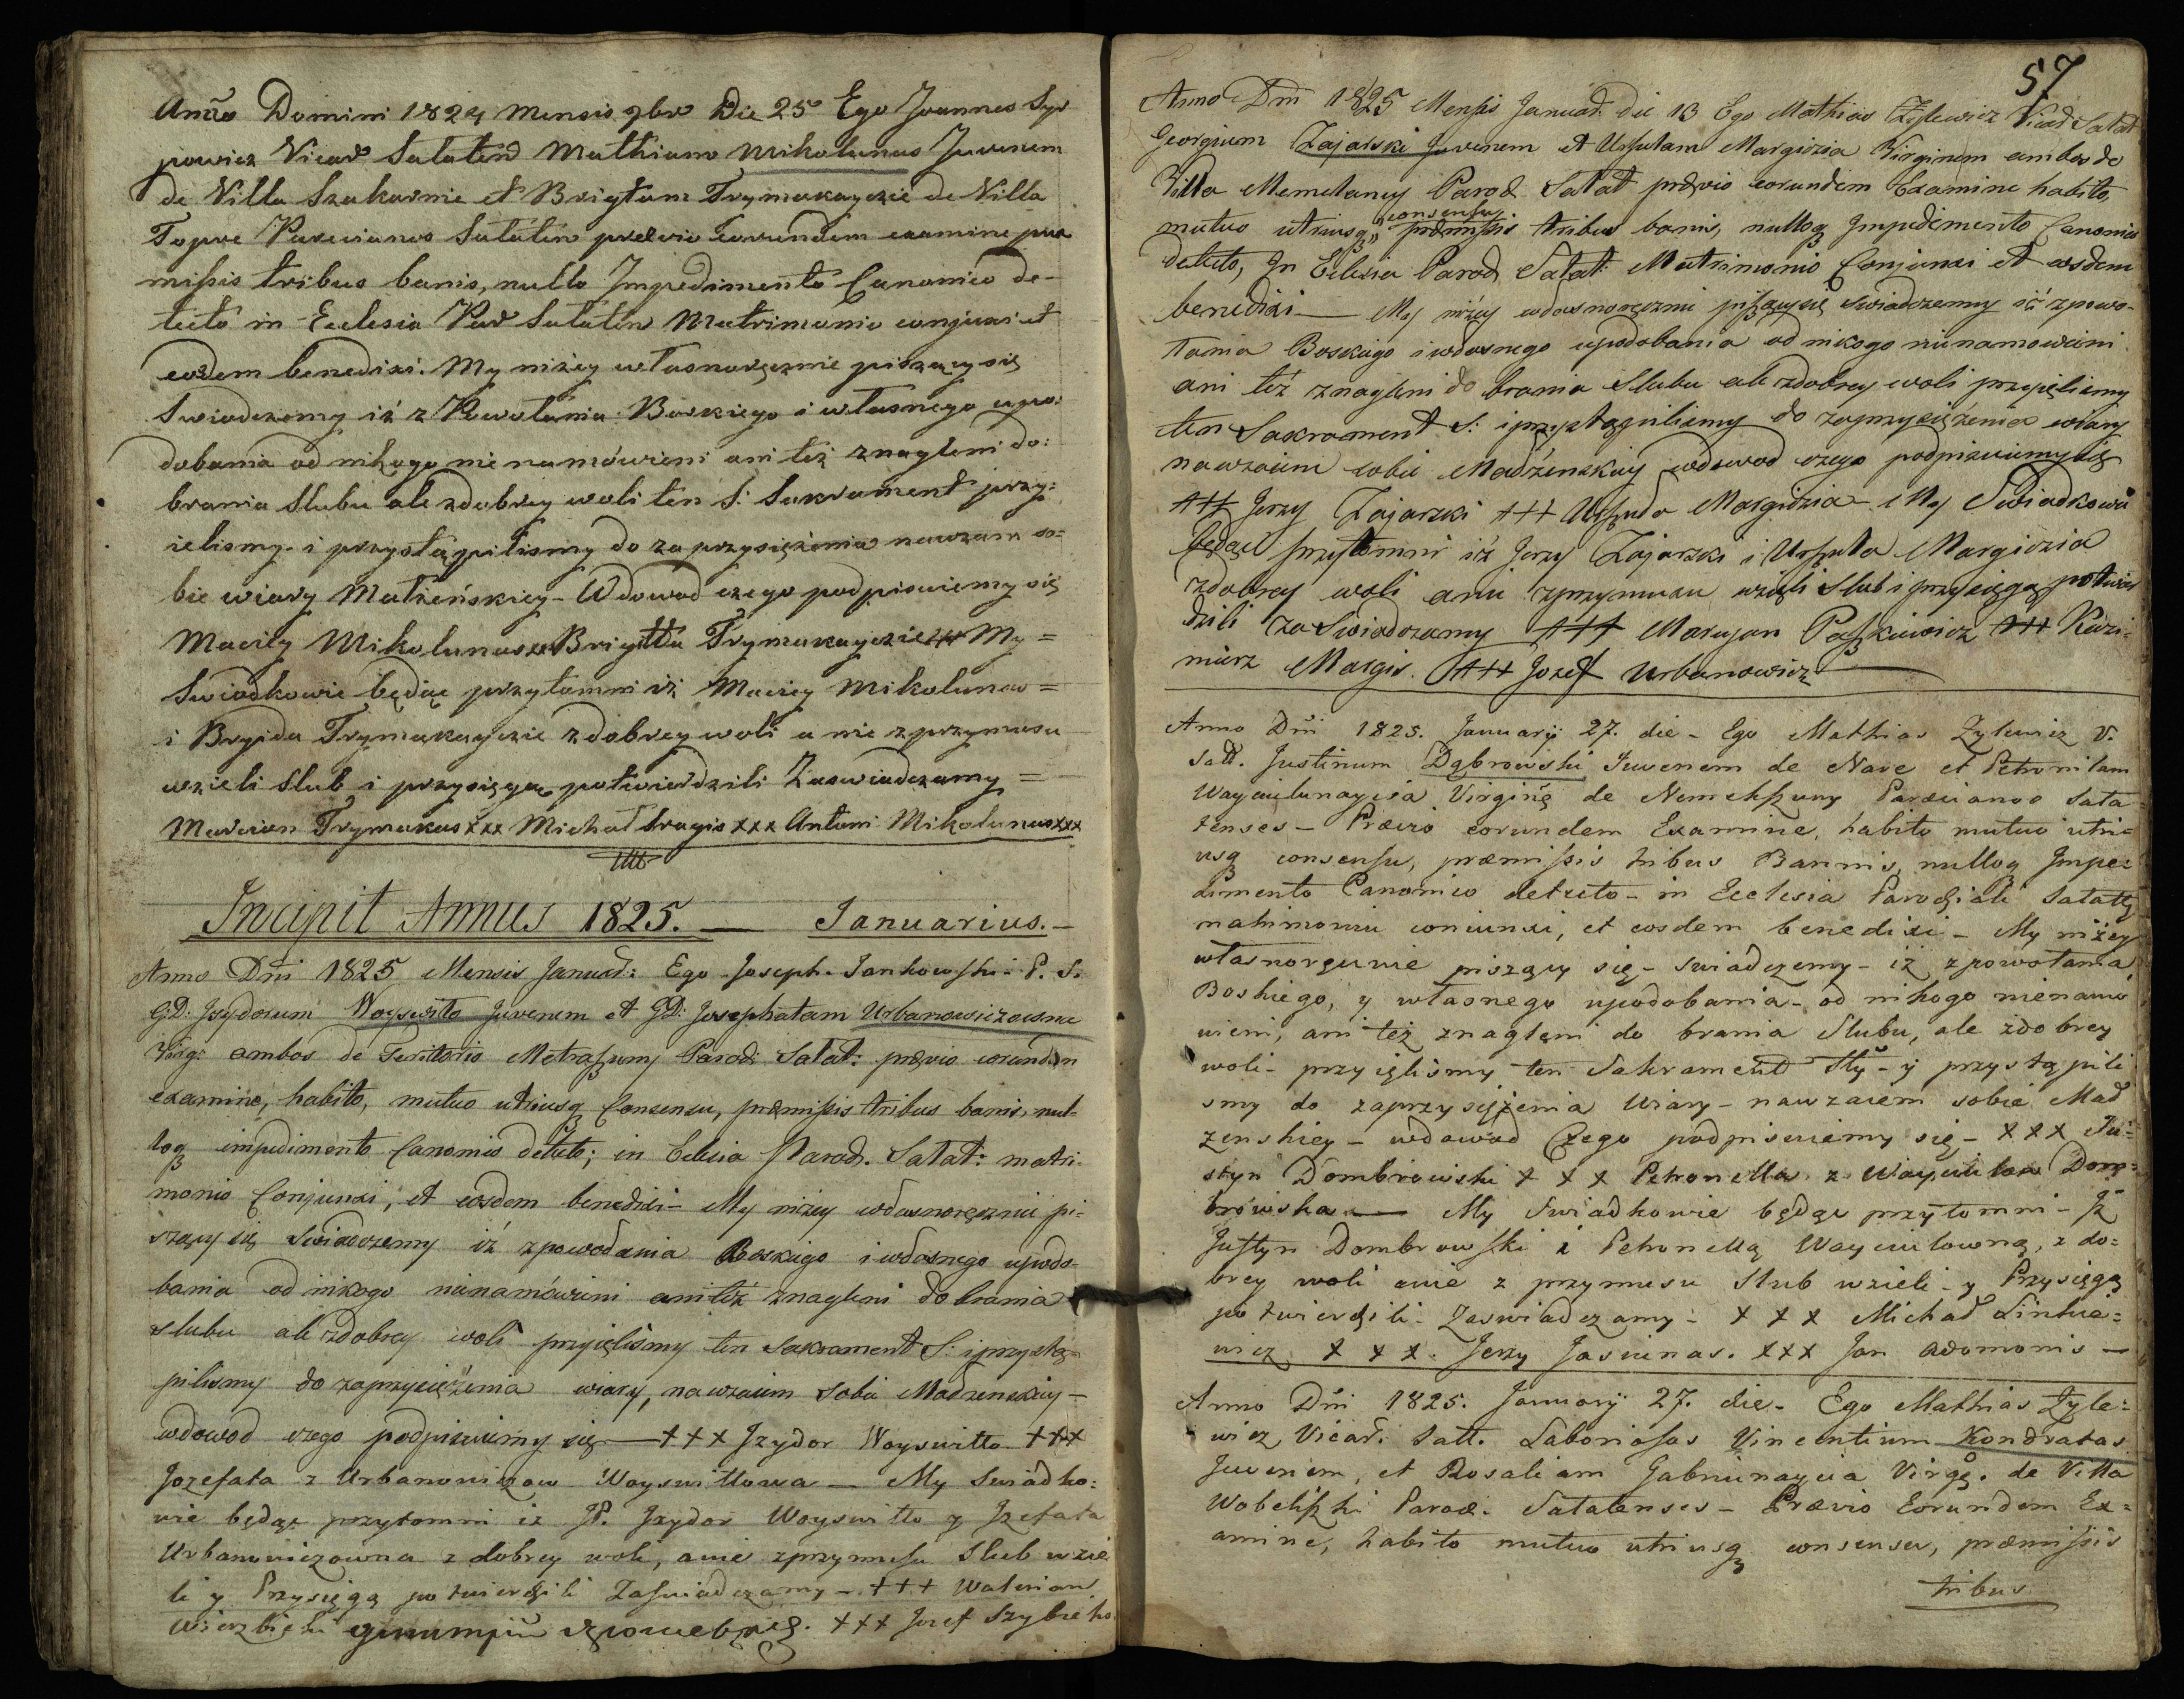 Anno Domini 1824 Mensis 9br Die 25 Ego Joannes Syr
powicz Vicar Salaten Mathiam Mikolunas Juvenem
de Villa Szakarnie et Brigitam Trymakayczie de Villa
Topre Parecianos Salaten praevio eorundem examine prae
missis tribus banis, nullo Impedimento Canonico de-
tecto in Ecclesia Par Salaten Matrimonio conjunxi et
eosdem benedixi. My niżey własnoręcznie piszący się
Swiadczemy iż z Powołania Boskiego i własnego upo:
dobania od nikogo nie namówieni ani też znagleni do:
brania Slubu ale zdobrey woli ten S: Sakrament przy:
ielismy i przystąpilismy do zaprzysiężenia nawzaiem so=
bie wiary Małżeńskiey - Wdowod czego podpisuiemy się
Maciey Mikolunas xxx Brigitta Trymakayczie xxx My =
Swiadkowie będąc przytomni iż Maciey Mikolunas =
i Bryida Trymakayczie zdobrey woli a nie zprzymusu
wzieli slub i przysięgą potwierdzili Zaswiadczamy =
Marcian Trymakas xxx Michał bragis xxx Antoni Mikolunas xxx
Incipit Annus 1825. — Januarius. -
Anno Dni 1825 Mensis Januar: Ego Joseph Jankowski P. S.
GD: Jzydorum Woyswitto Juvenem et GD: Josephatam Urbanowiczowna
Virg: ambos de Teritorio Metraszuny Paroch: Salat: praevio eorundem
examine, habito, mutuo utriusq Consensu, praemissis tribus banis, nul-
loq impedimento Canonico detecto; in Eclesia Paroch. Salat: matri-
monio Conjunxi, et eosdem benedixi - My niżey własnoręcznie pi-
szący się Swiadczemy iż zpowołania Boskiego i własnego upodo-
bania od nikogo nienamówieni ani też znagleni do brania
slubu ale zdobrey woli przyięliśmy ten Sakrament S: i przystą-
piliśmy do zaprzysiężenia wiary, nawzaiem sobie Małżenskiey -
wdowod czego podpisuiemy się — +++ Jzydor Woyswitto +++
Jozefata z Urbanowiczow Woyswittowa — My Swiadko:
wie będąc przytomni iz JP. Jzydor Woyswitto y Jzefata
Urbanowiczowna z dobrey woli, anie zprzymusu Slub wzie
li y Przysięgą potwierdzili Zaswiadczamy - +++ Walerian
Wierzbicki +++ Jozef Szybieko
57
Anno Dni 1825 Mensis Januar. die 13 Ego Mathias Żylewicz Vicar Salat
Georgium Zajarski Juvenem et Ursulam Margidzia Virginem ambos de
Villa Memelancy Paroch Salat praevio eorundem Examine habito,
consensu
mutuo utriusq, praemissis tribus banis, nulloq Jmpedimento Canonico
detecto, Jn Eclesia Paroch Salat: Matrimonio Conjunxi et eosdem
benedixi — My niżey własnoręcznie piszący się Swiadczemy iż zpowo-
łania Boskiego i własnego upodobania od nikogo nienamowieni
ani też znagleni do brania Slubu ale zdobrey woli przyięlismy
ten Sakrament S: i przystąpilismy do zaprzysiężenia wiary
nawzaiem sobie Małżenskiey wdowod czego podpisuiemy się
+++ Jerzy Zajarski +++ Urszula Margidzia - My Swiadkowie
będąc przytomni iż Jerzy Zajarski i Urszula Margidzia
zdobrey woli anie zprzymusu wzięli Slub i przysięgą potwier
dzili Zaswiadczamy +++ Maryan Paszkiewicz +++ Kazi-
mierz Margis. +++ Jozef Urbanowicz
Anno Dni 1825. January 27. die - Ego Mathias Zylewicz V.
Sall. Justinum Dąbrowski Juvenem de Nave et Petronilam
Wayciulunaycia Virginę de Nemekszuny Parecianos Sala
tenses - Praevio eorundem Examine, habito mutuo utri=
usq consensu, praemissis tribus Bannis, nulloq Jmpe=
dimento Canonico detecto - in Ecclesia Parochiali Salatę
matrimoniu coniunxi, et eosdem benedixi - My niżey
własnoręcznie piszący się - swiadczemy - iż zpowołania
Boskiego, y własnego upodobania - od nikogo nienamo
wieni, ani też znagleni do brania Slubu, ale zdobrey
woli - przyięliśmy ten Sakrament Sty - y przystąpili
smy do zaprzysiężenia Wiary - nawzaiem sobie Mał
zenskiey - wdowod Czego podpisuiemy się - xxx Ju=
styn Dombrowski x x x Petronella z Wayciulow Dom=
browska. — My Swiadkowie będąc przytomni - Jż
Justyn Dombrowski i Petronellą Wayciulowną, z do=
brey woli anie z przymusu Slub wzieli - y Przysięgą
potwierdzili - Zaswiadczamy - x x x Michał Linkie=
wicz x x x. Jerzy Jasiunas. xxx Jan Adomonis —
Anno Dni 1825. January 27. die - Ego Mathias Zyle=
wicz Vicar. Sall. Laboriosos Vincentium Kondratas
Juvenem, et Rosaliam Gabriunaycia Virgę. de Villa
Wobeliszki Paroc. Salatenses - Praevio Eorundem Ex=
amine, habito mutuo utriusq consensu, praemissis
tribus